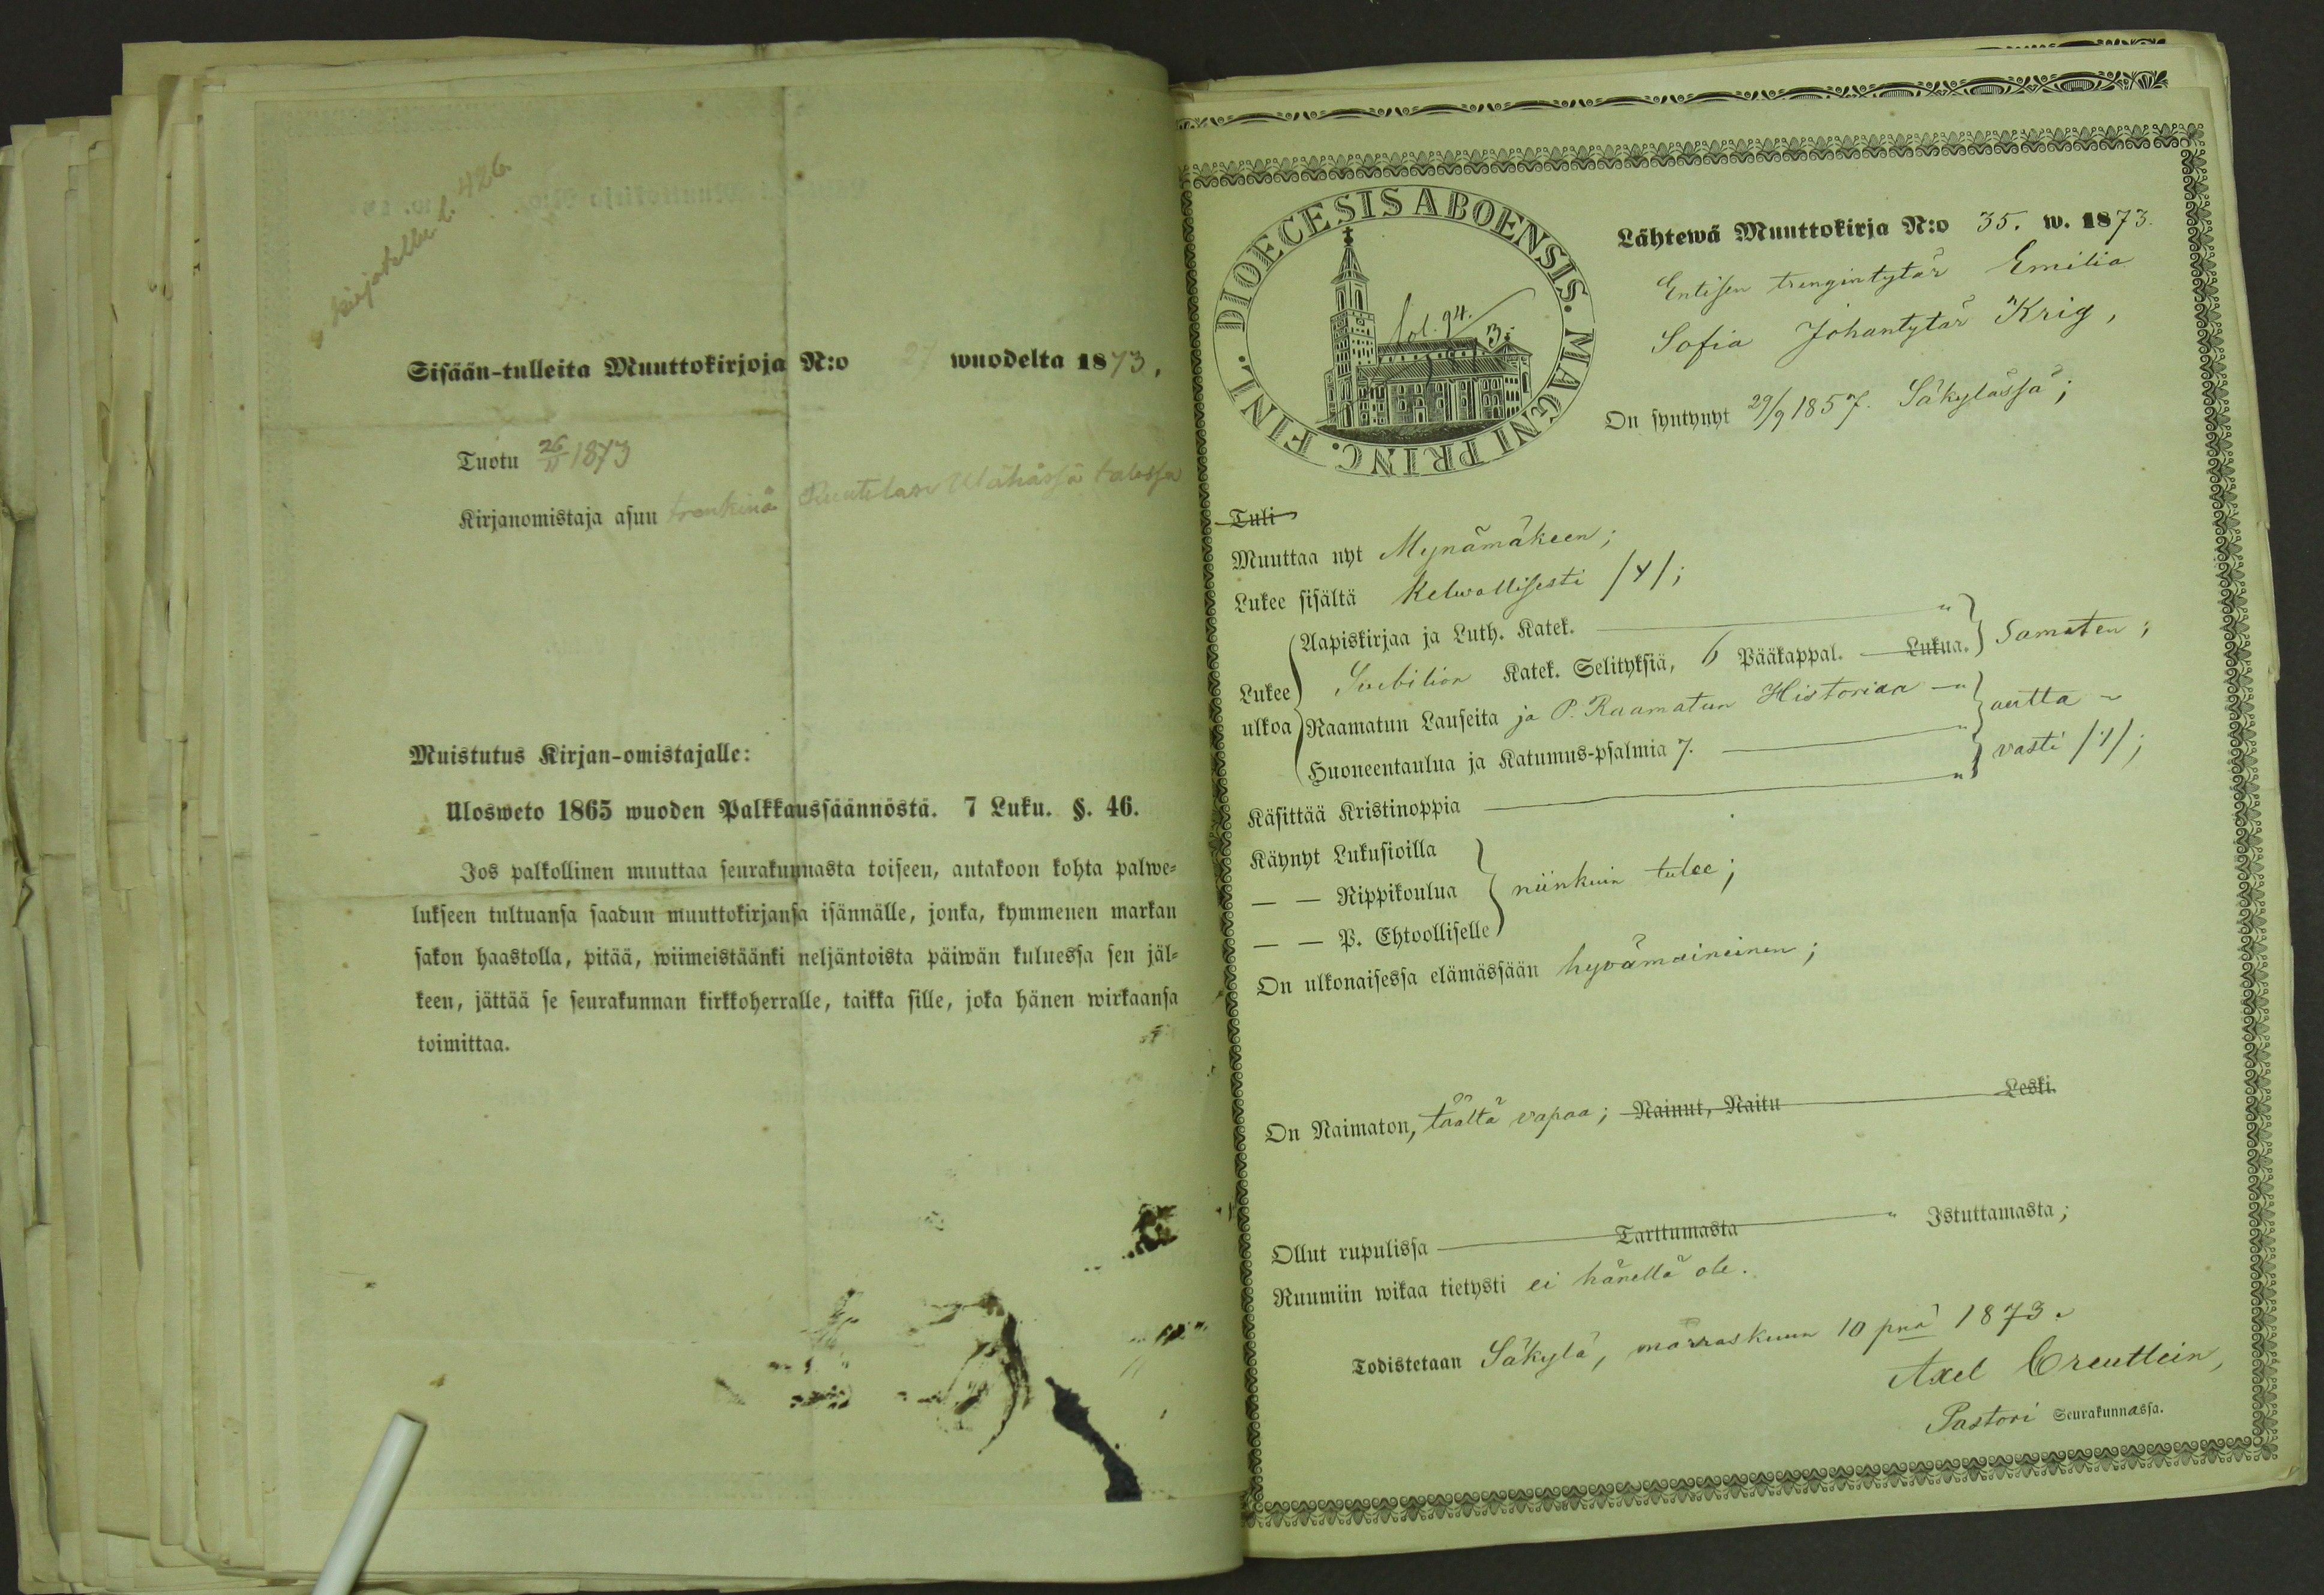 kirjoitettu l. 426
Sisään-tulleita Muuttokirjoja N:o 27 wuodelta 1873.
Tuotu 26/11 1873
Kirjanomistaja asuu trenkinä Wähässä talossa
Muistutus Kirjan-omistajalle:
Ulosweto 1865 wuoden Palkkaussäännöstä. 7 Luku. §. 46.
Jos palkollinen muuttaa seurakunnasta toiseen, antakoon kohta palwe-
lukseen tultuansa saadun muuttokirjansa isännälle, jonka, kymmenen markan
sakon haastolla, pitää, wiimeistäänki neljäntoista päiwän kuluessa sen jäl-
keen, jättää se seurakunnan kirkkoherralle, taikka sille, joka hänen wirkaansa
toimittaa.
DIOECESIS ABOENSIS. MAGNI PRINC. FINL.
fol. 94.
Lähtewä Muuttokirja N:o 35. w. 1873.
Entisen trengintytär Emilia
Sofia Johantytär Krig,
On syntynyt 29/9 1857. Säkylässä;
Tuli
Muuttaa nyt Mynämäkeen;
Lukee sisältä Kelwollisesti /4/;
Lukee ulkoa
Aapiskirjaa ja Luth. Katek. "
Svebilion Katek. Selityksiä, 6 Pääkappal. Lukua. Samaten;
Raamatun Lauseita ja P. Raamatun Historiaa "
Huoneentaulua ja Katumus-psalmia 7. " autta-
Käsittää Kristinoppia " vasti /1/;
Käynyt Lukusioilla
— — Rippikoulua niinkuin tulee;
— — P. Ehtoolliselle
On ulkonaisessa elämässään hyvämaineinen;
On Naimaton, täältä vapaa; Nainut, Naitu Leski
Ollut rupulissa Tarttumasta " Istuttamasta;
Ruumiin wikaa tietysti ei hänellä ole.
Todistetaan Säkylä, marraskuun 10 pnä 1873.
Axel Creutlein,
Pastori Seurakunnassa.